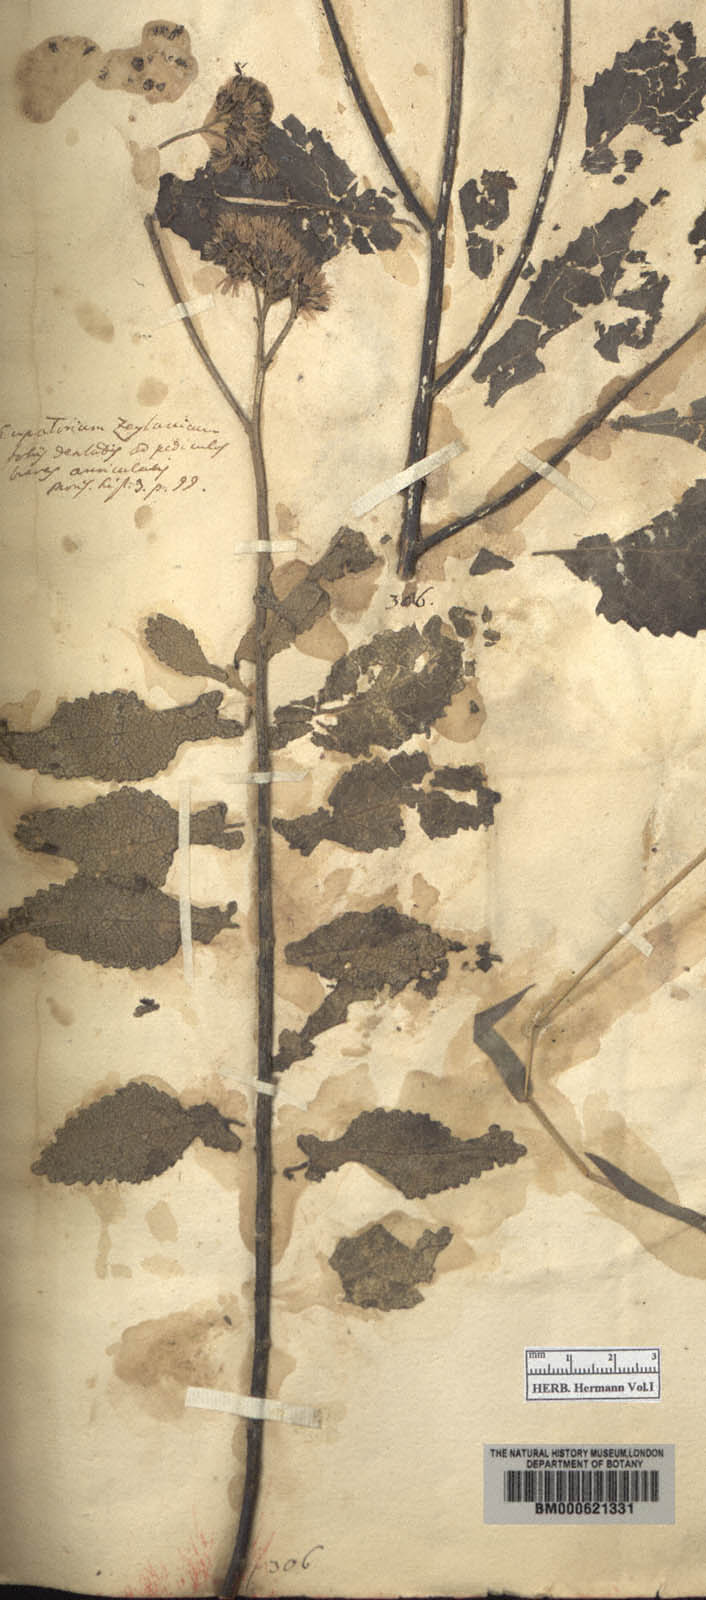 Eupatorium Zeylanicum
foliis dentatis ad pediculos
auriculatis
moris. hist. 3. p. 99.
306.
mm 1 2 3
HERB. Hermann Vol.I
THE NATURAL HISTORY MUSEUM,LONDON
DEPARTMENT OF BOTANY
BM000621331
306